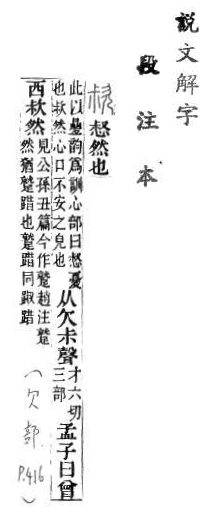 說文解字
段注本
㰗 惄然也
此以疊韵爲訓心部曰惄憂
也㰗然心口不安之皃也
从欠尗聲
才六切
三部
孟子曰曾
西㰗然
見公孫丑篇今作蹵趙注蹵
然猶蹵踖也蹵踖同踧踖
(欠部 P.416)